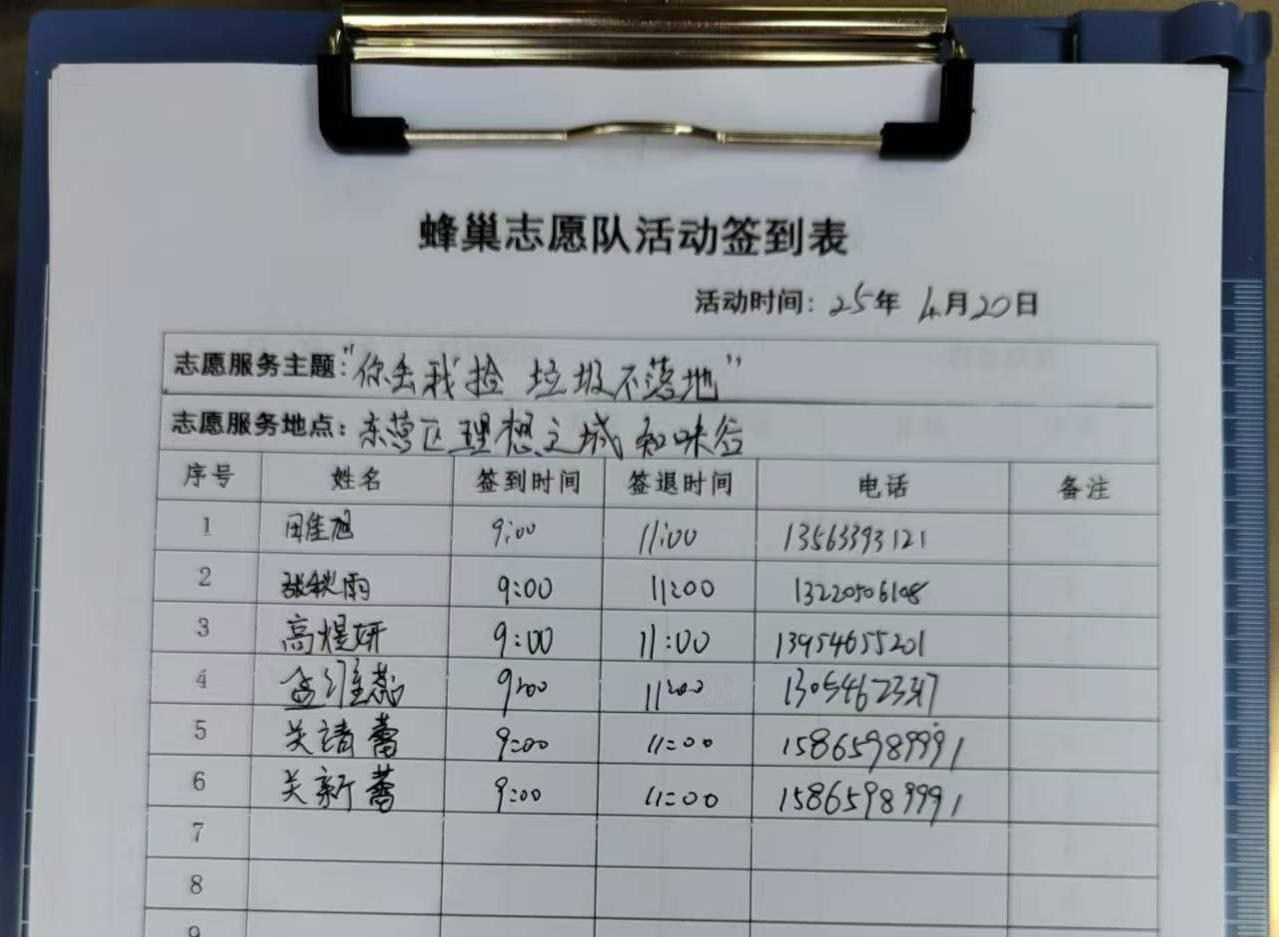 蜂巢志愿队活动签到表
活动时间: 25年 4月20日
志愿服务主题:"你丢我捡 垃圾不落地"
志愿服务地点: 东营区理想之城 知味谷
序号 姓名 签到时间 签退时间 电话 备注
1 田佳旭 9:00 11:00 13563393121
2 张秋雨 9:00 11:00 13220506108
3 高煜妍 9:00 11:00 13954655201
4 孟维蕊 9:00 11:00 13054623347
5 关靖蕾 9:00 11:00 15865989991
6 关新蕾 9:00 11:00 15865989991
7
8
9